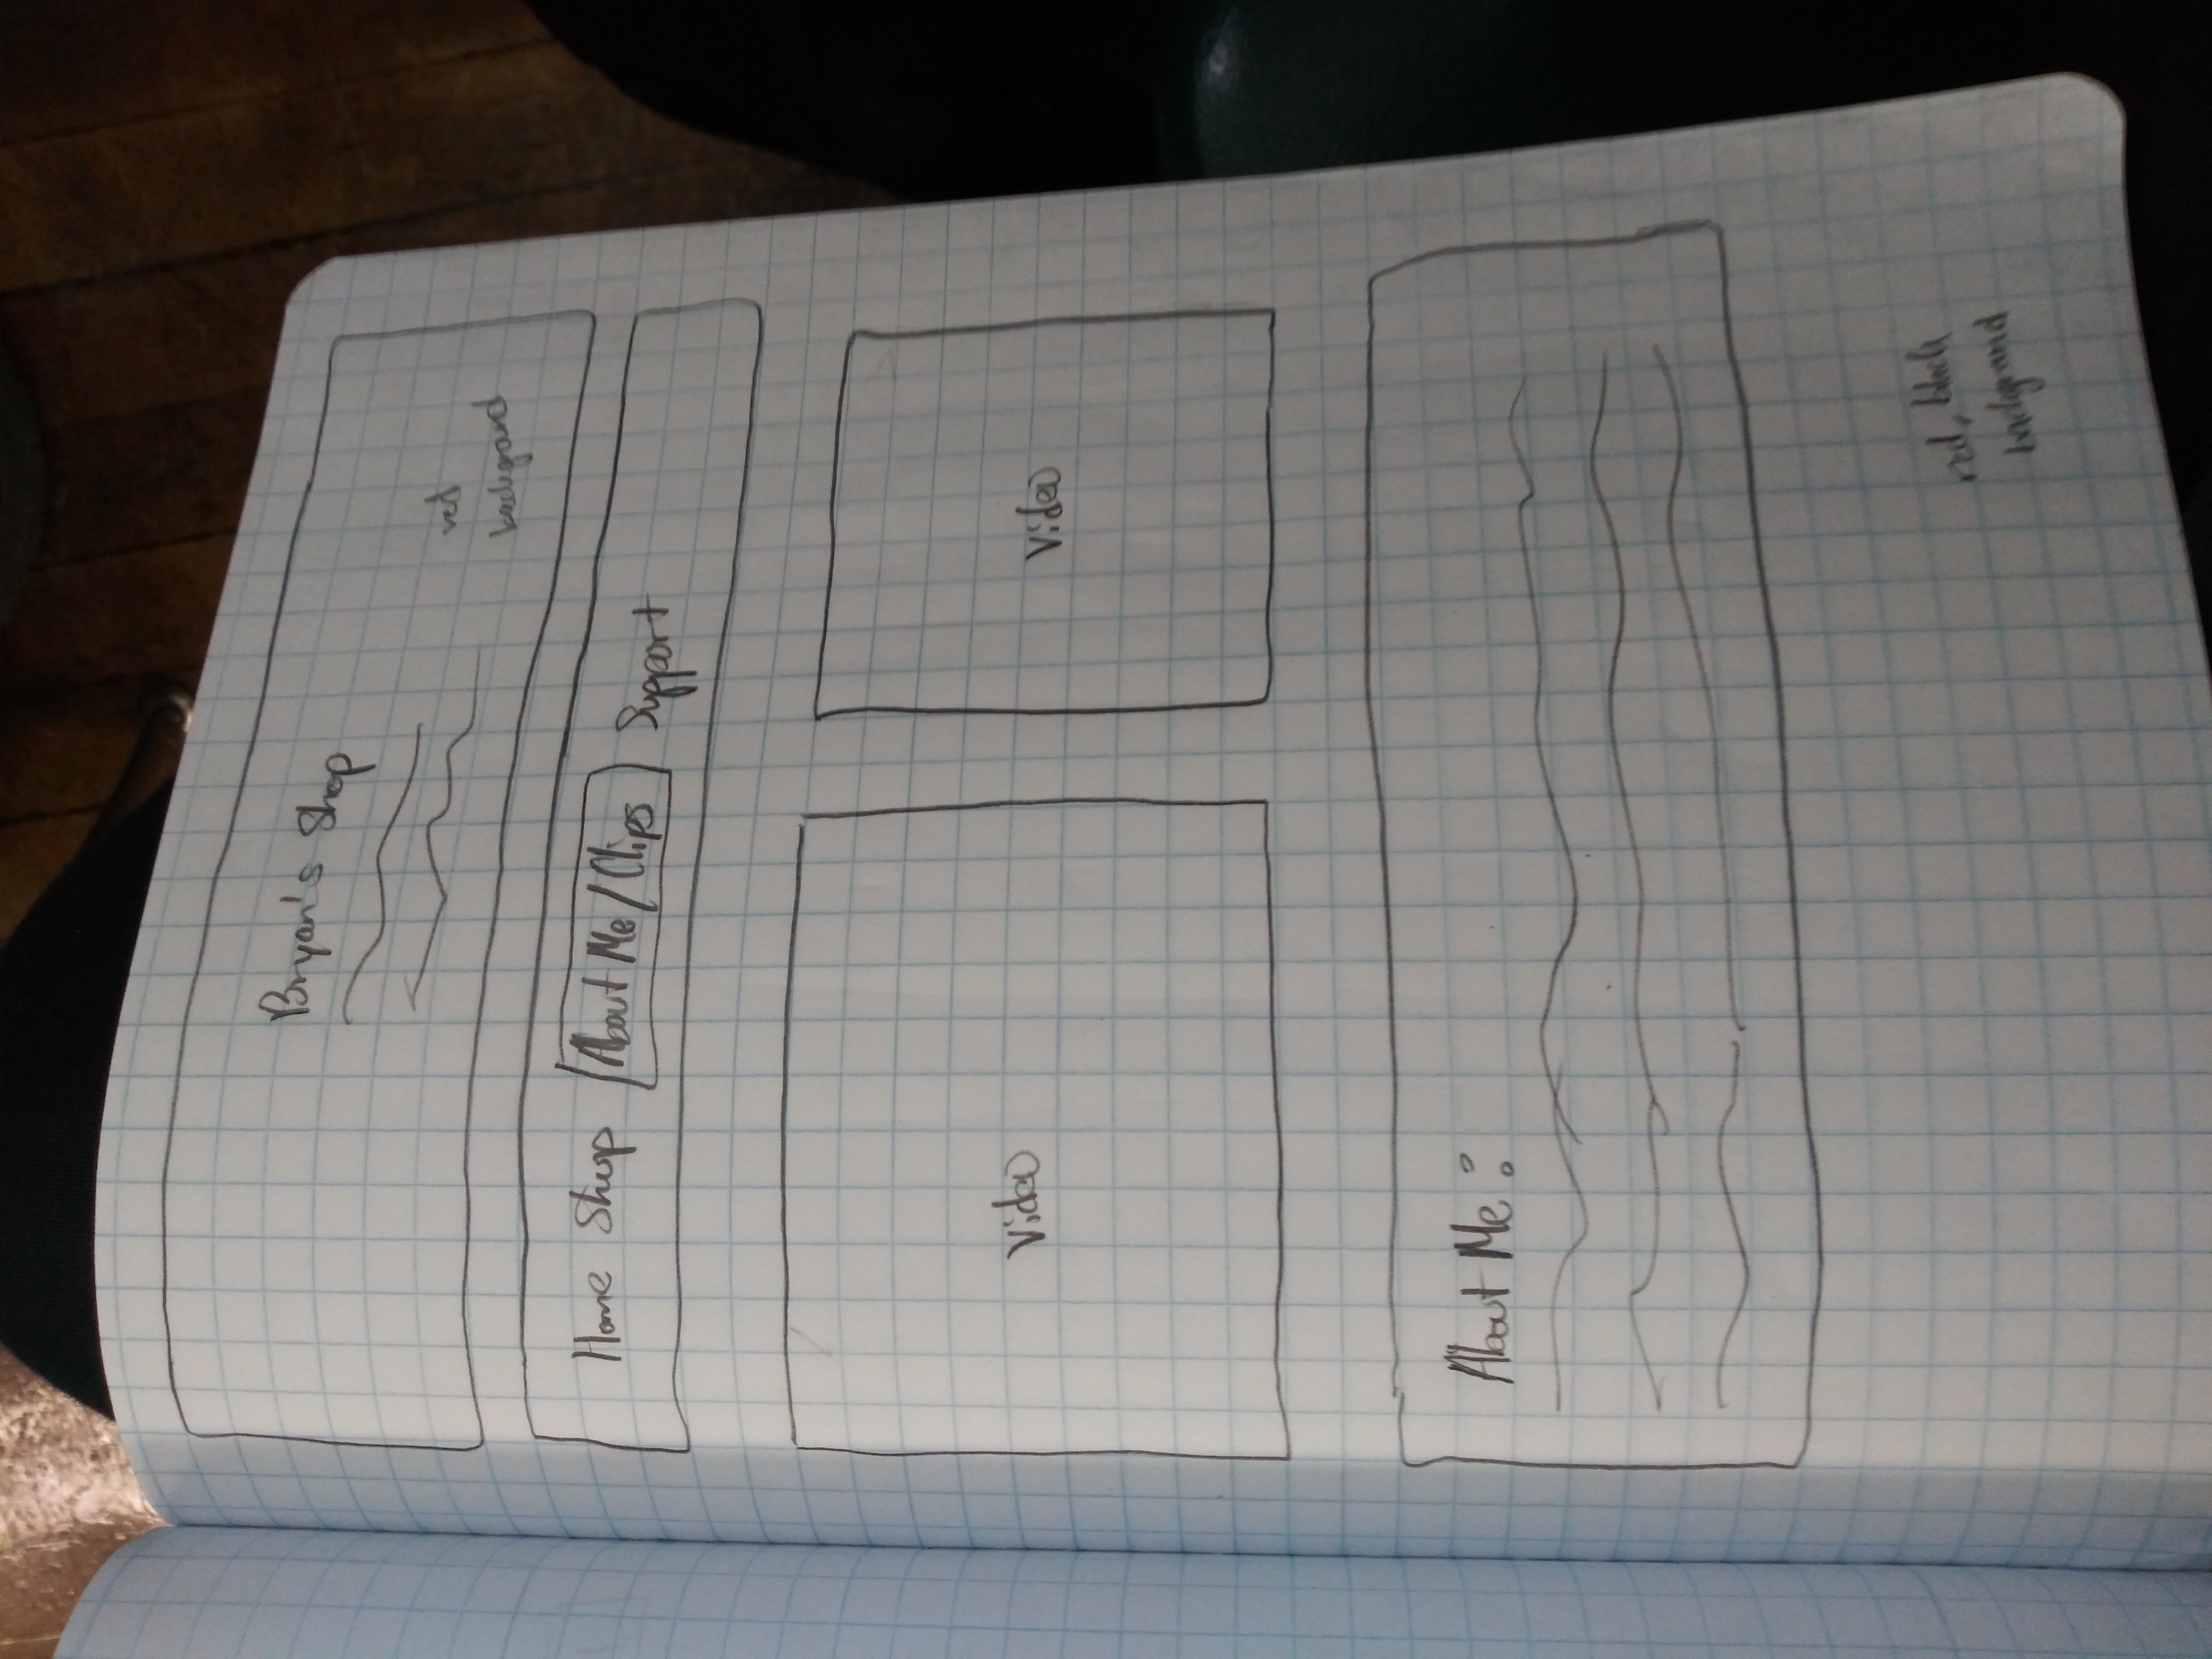 Bryan's Shop
red
background
Home Shop About Me/Clips Support
Video
Video
About Me:
red, black
background